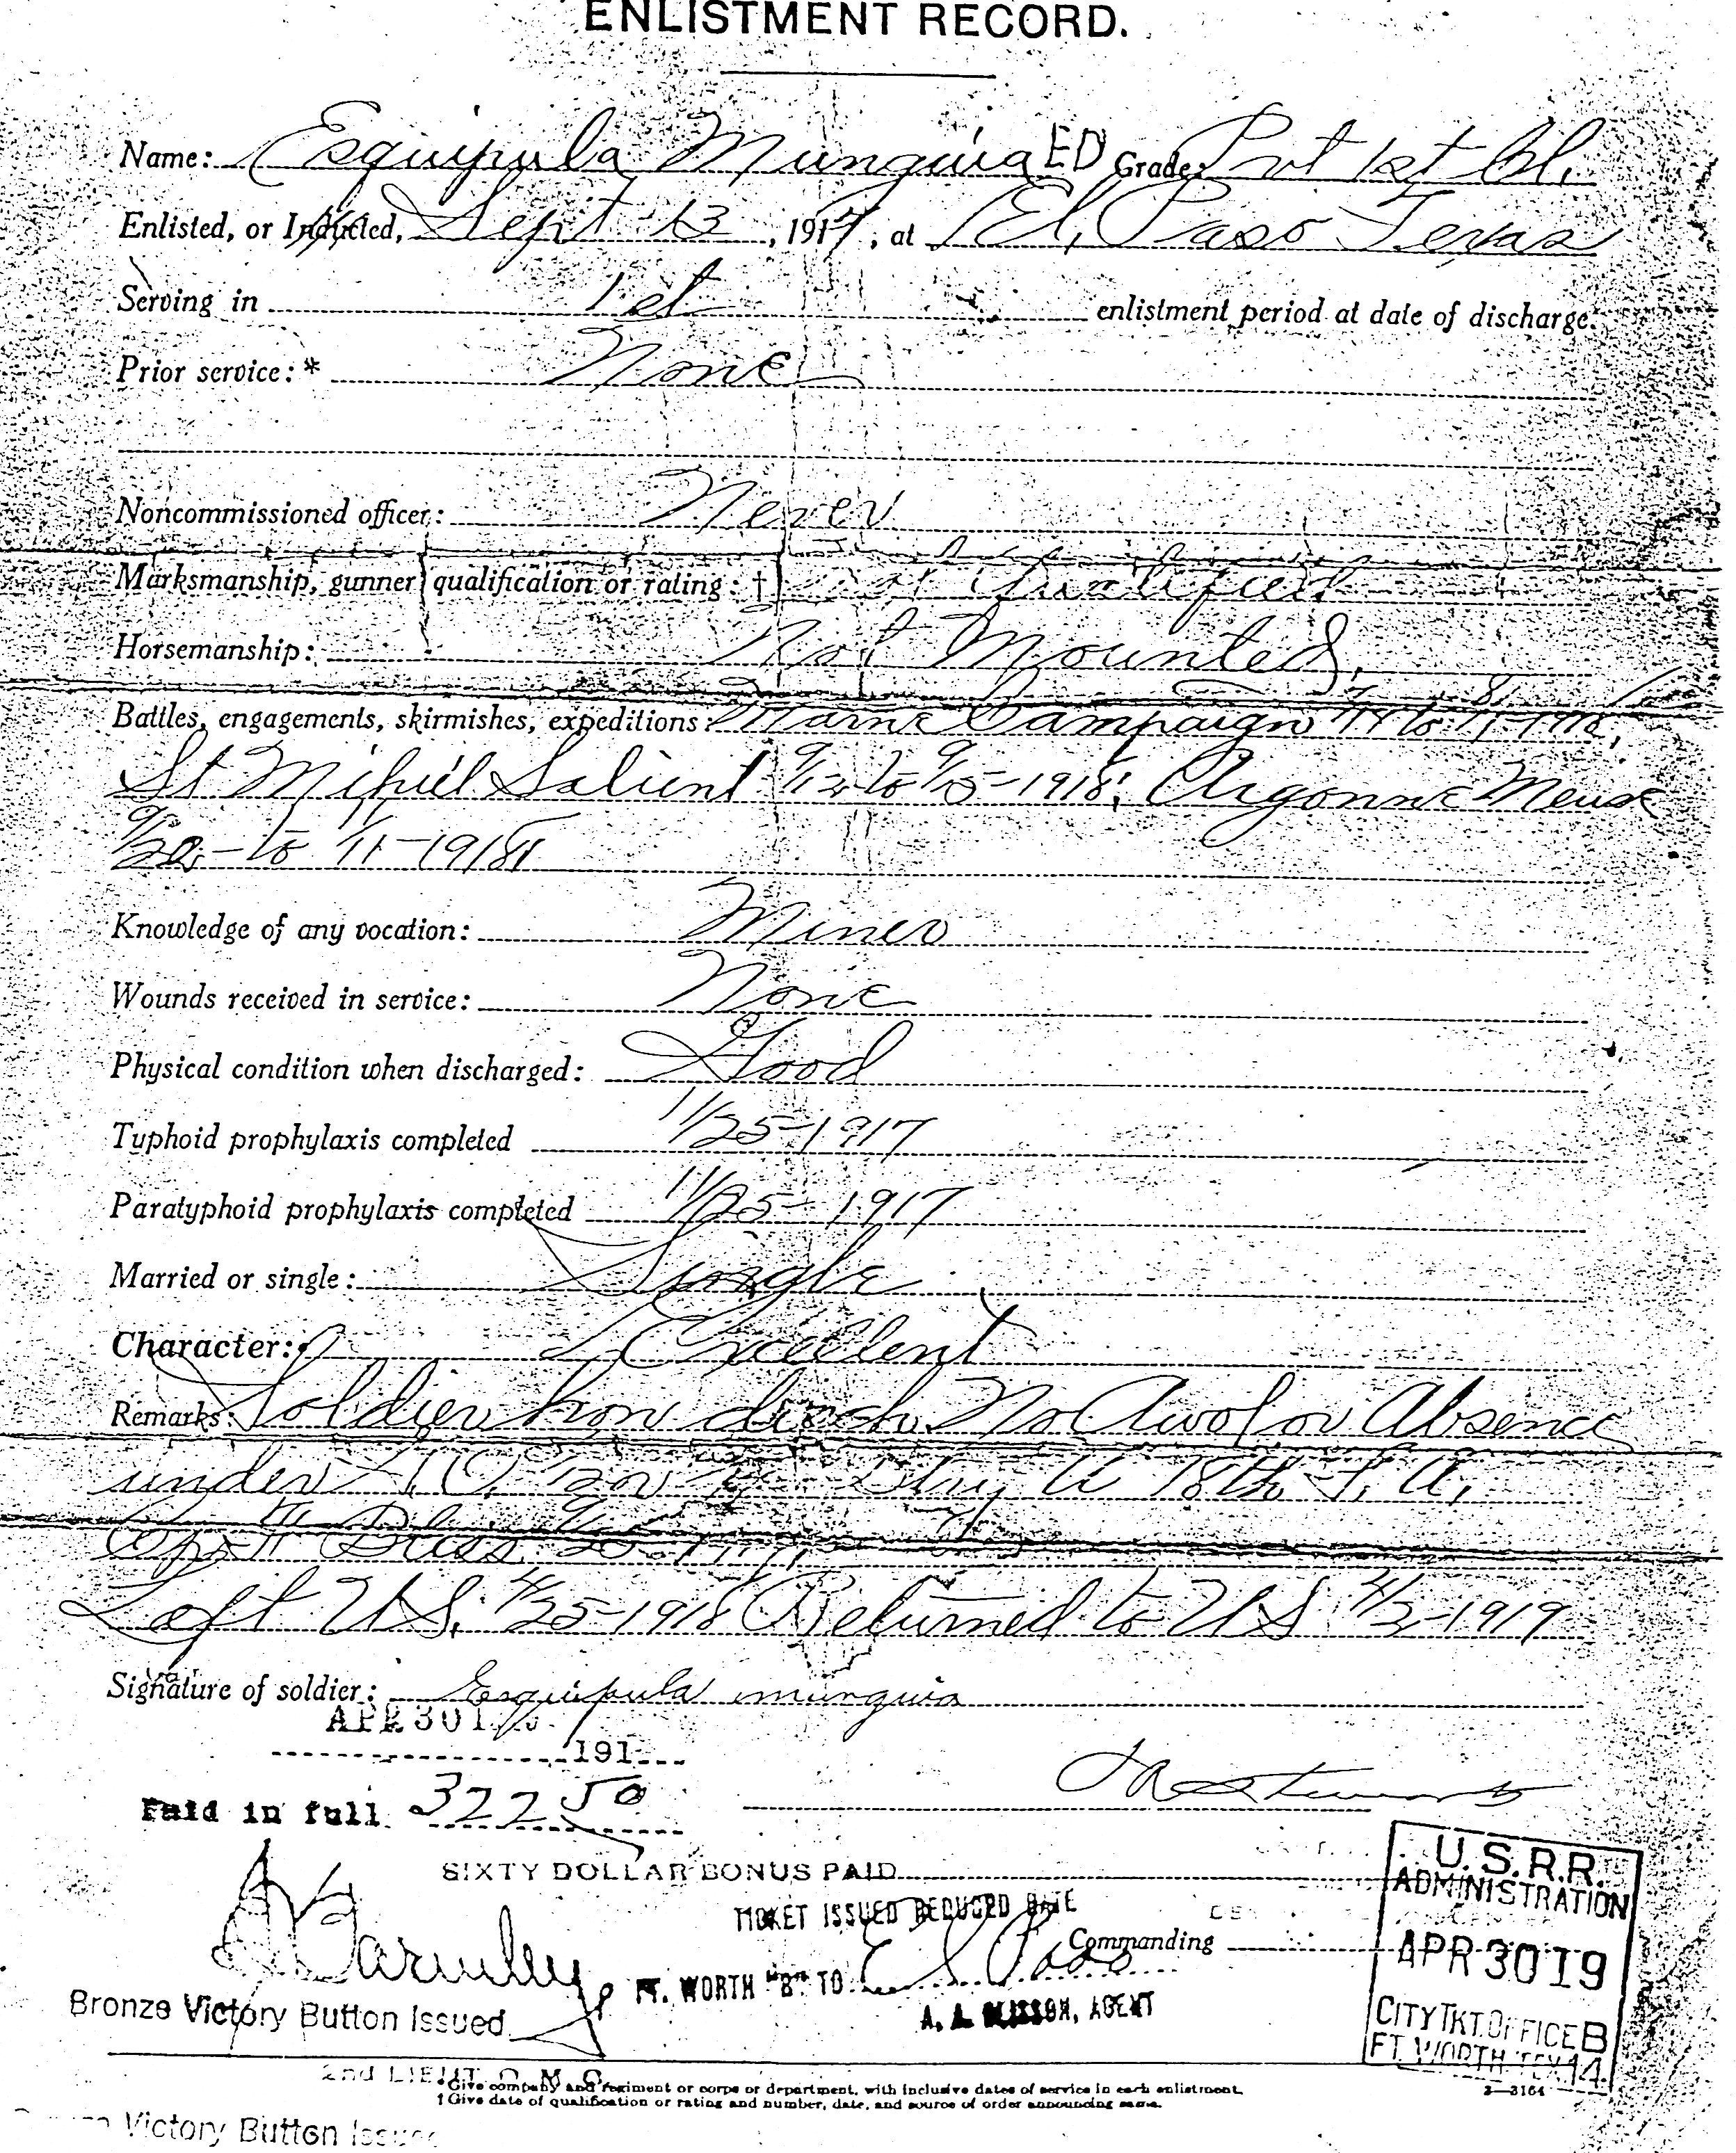 ENLISTMENT RECORD.
Name: Esquipula Munguia ED Grade: Pvt 1st Cl.
Enlisted, or Inducted, Sept 13, 1917, at El, Paso Texas
Serving in 1st enlistment period at date of discharge.
Prior service:* None
Noncommissioned officer: Never
Marksmanship, gunner qualification or rating:† Not Qualified
Horsemanship: Not Mounted.
Battles, engagements, skirmishes, expeditions: Marne Campaign
St Mihiel Salient 9/12 to 9/15-1918; Argonne Meuse
to 11/11-1918
Knowledge of any vocation: Miner
Wounds received in service: None
Physical condition when discharged: Good
Typhoid prophylaxis completed 11/25-1917
Paratyphoid prophylaxis completed 11/25-1917
Married or single: Single
Character: Excellent
Remarks: Soldier hon disch. No Awol or Absence
under G.O. 18th F. A.
Bliss
Left U.S. 4/25-1918 Returned to US 4/2-1919
Signature of soldier: Esquipula munguia
APR 30
191
Paid in full 322 50
SIXTY DOLLAR BONUS PAID
TICKET ISSUED REDUCED RATE
Commanding
FT. WORTH "B" TO El Paso
AGENT
U.S.R.R.
ADMINISTRATION
APR 30 19
CITY TKT. OFFICE B
FT. WORTH TEX 14
Bronze Victory Button Issued
2nd LIEUT. Q. M. C.
* Give company and regiment or corps or department, with inclusive dates of service in each enlistment.
† Give date of qualification or rating and number, date, and source of order announcing same.
3—3164
Victory Button Issued